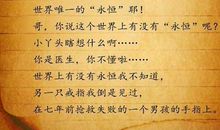 世界唯一的“永恒”耶！
哥，你说这个世界上有没有“永恒”呢？
小丫头瞎想什么啊……
你是医生，你不懂啦……
世界上有没有永恒我不知道，
另一只戒指我倒是见过，
在七年前抢救失败的一个男孩的手指上。